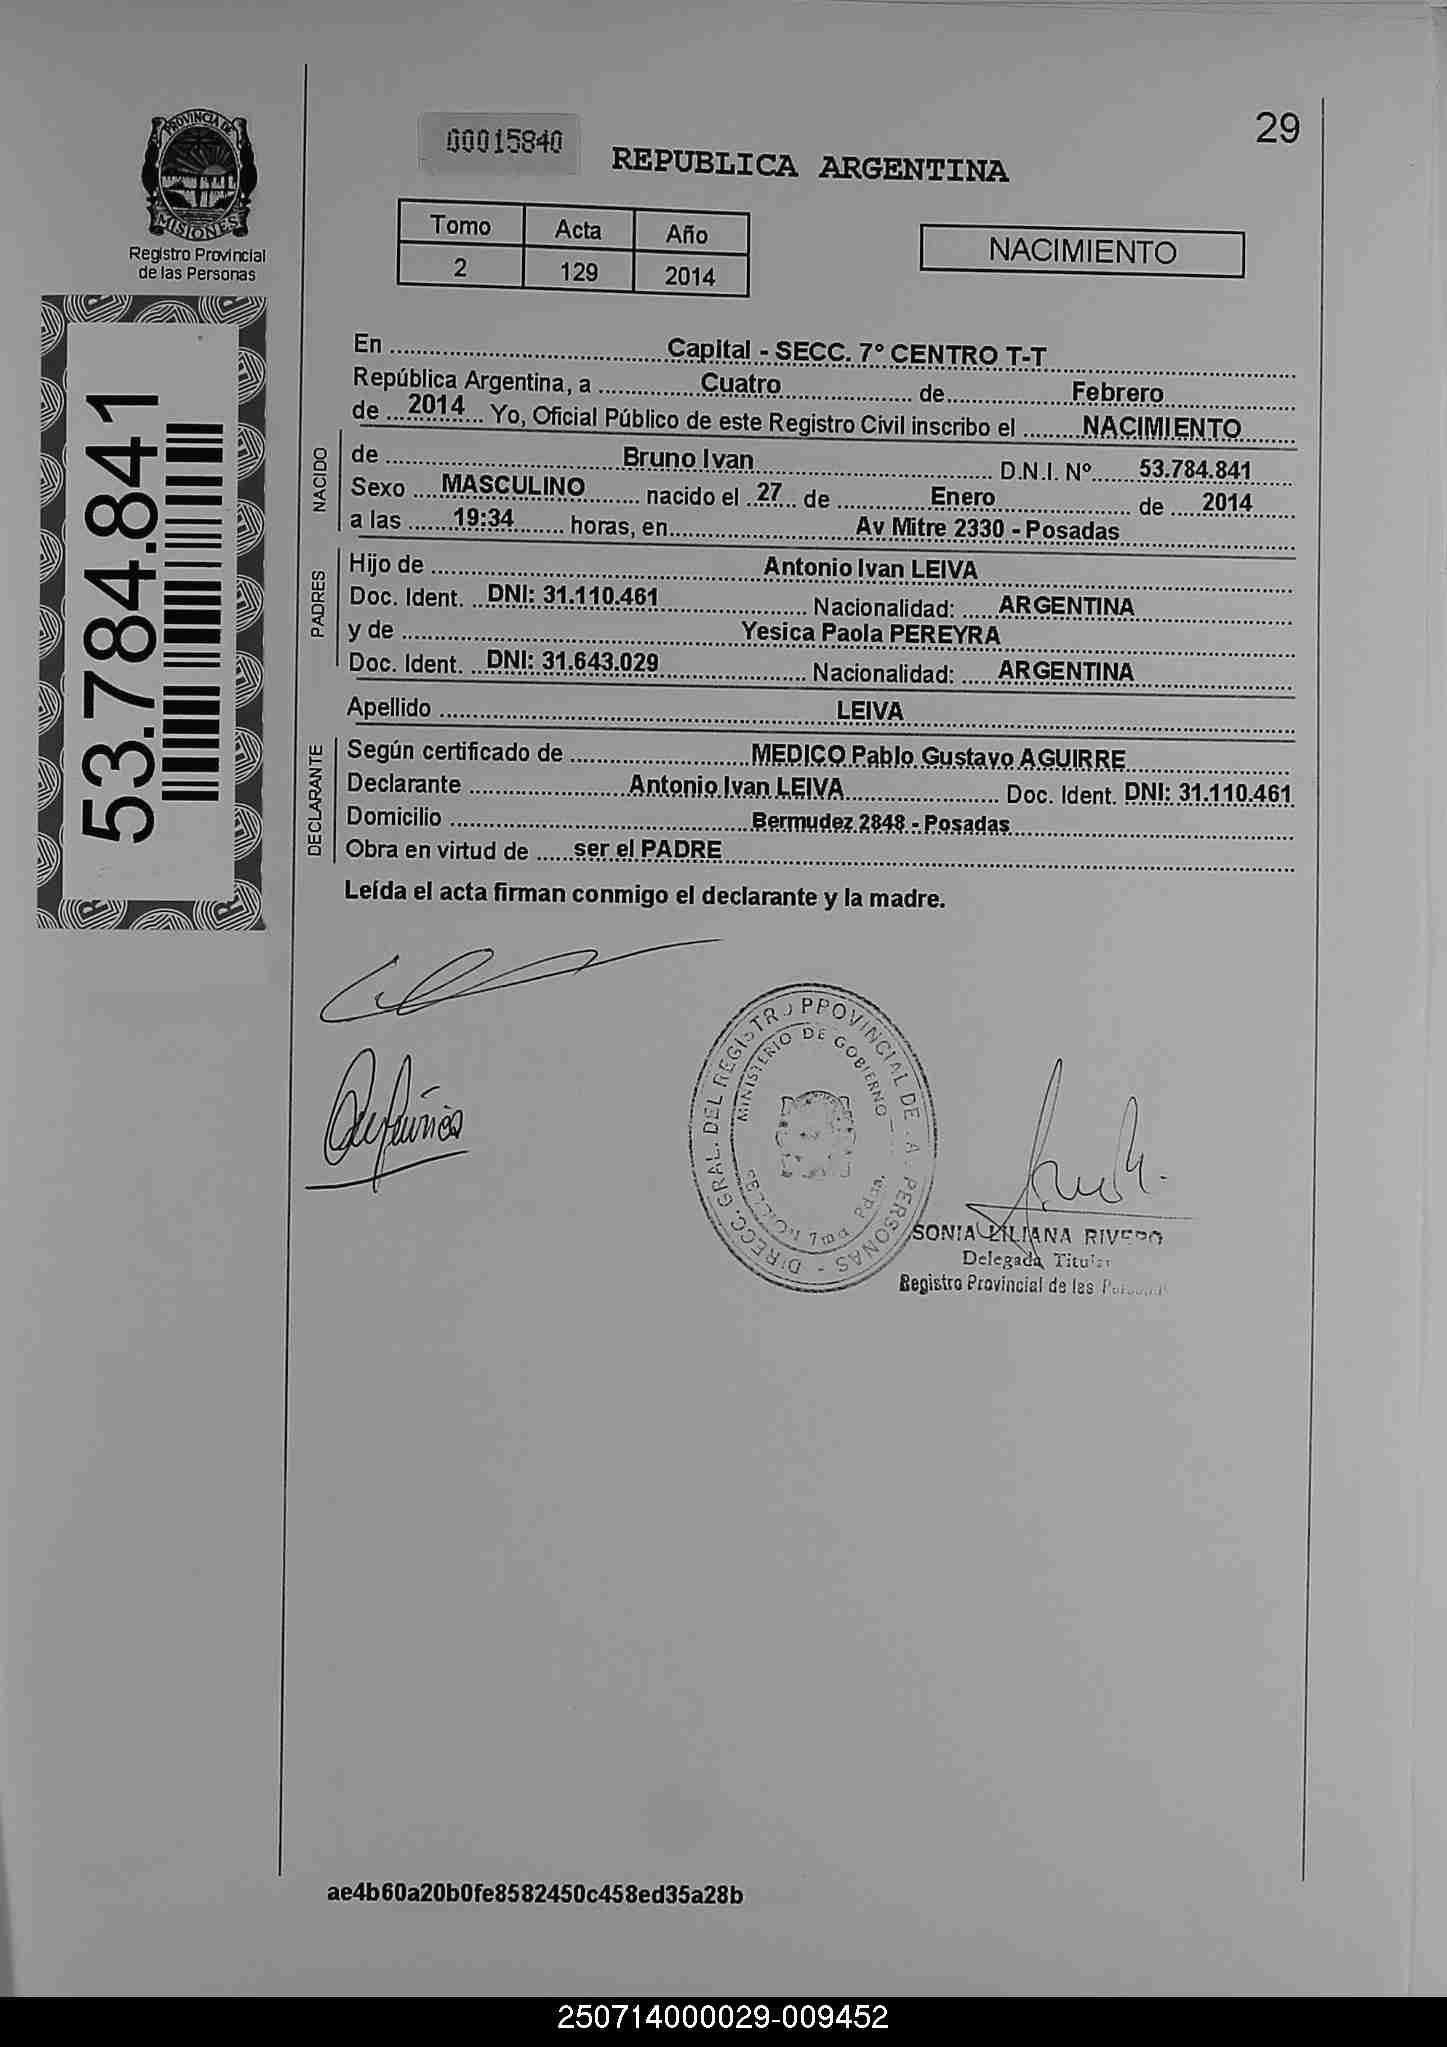 PROVINCIA DE
MISIONES
Registro Provincial
de las Personas
53.784.841
00015840
29
REPUBLICA ARGENTINA
Tomo Acta Año
2 129 2014
NACIMIENTO
En Capital - SECC. 7° CENTRO T-T
República Argentina, a Cuatro de Febrero
de 2014 Yo, Oficial Público de este Registro Civil inscribo el NACIMIENTO
NACIDO
de Bruno Ivan D.N.I. Nº 53.784.841
Sexo MASCULINO nacido el 27 de Enero de 2014
a las 19:34 horas, en Av Mitre 2330 - Posadas
PADRES
Hijo de Antonio Ivan LEIVA
Doc. Ident. DNI: 31.110.461 Nacionalidad: ARGENTINA
y de Yesica Paola PEREYRA
Doc. Ident. DNI: 31.643.029 Nacionalidad: ARGENTINA
Apellido LEIVA
DECLARANTE
Según certificado de MEDICO Pablo Gustavo AGUIRRE
Declarante Antonio Ivan LEIVA Doc. Ident. DNI: 31.110.461
Domicilio Bermudez 2848 - Posadas
Obra en virtud de ser el PADRE
Leída el acta firman conmigo el declarante y la madre.
DIRECC. GRAL. DEL REGISTRO PROVINCIAL DE PERSONAS
MINISTERIO DE GOBIERNO
7ma Pdas.
SONIA LILIANA RIVERO
Delegada Titular
Registro Provincial de las
ae4b60a20b0fe8582450c458ed35a28b
250714000029-009452